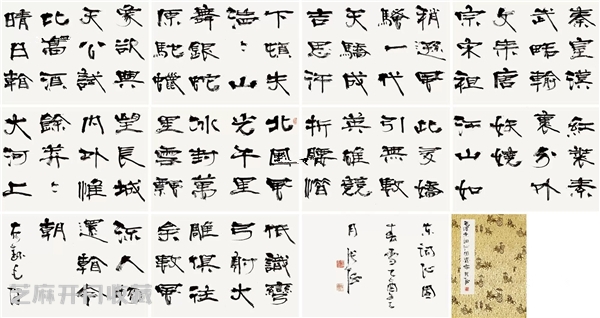 北國風
光千里
冰封萬
里雪飄
望長城
内外惟
餘莽〻
大河上
下頓失
滔〻山
舞銀蛇
原馳蠟
象欲與
天公試
比高須
晴日看
紅裝素
裹分外
妖嬈
江山如
此多嬌
引無數
英雄競
折腰惜
秦皇漢
武略輸
文采唐
宗宋祖
稍遜風
騷一代
天驕成
吉思汗
只識彎
弓射大
雕俱往
矣數風
流人物
還看今
朝
東詞沁園
春雪
芝麻开门收藏